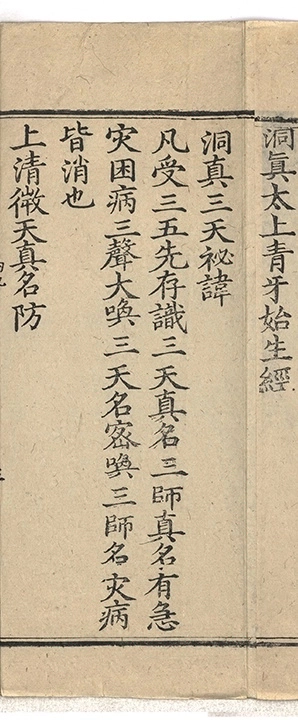 洞眞太上青牙始生經
洞真三天祕諱
凡受三五先存識三天真名三師真名有急
灾困病三聲大喚三天名密喚三師名灾病
皆消也
上清微天真名防